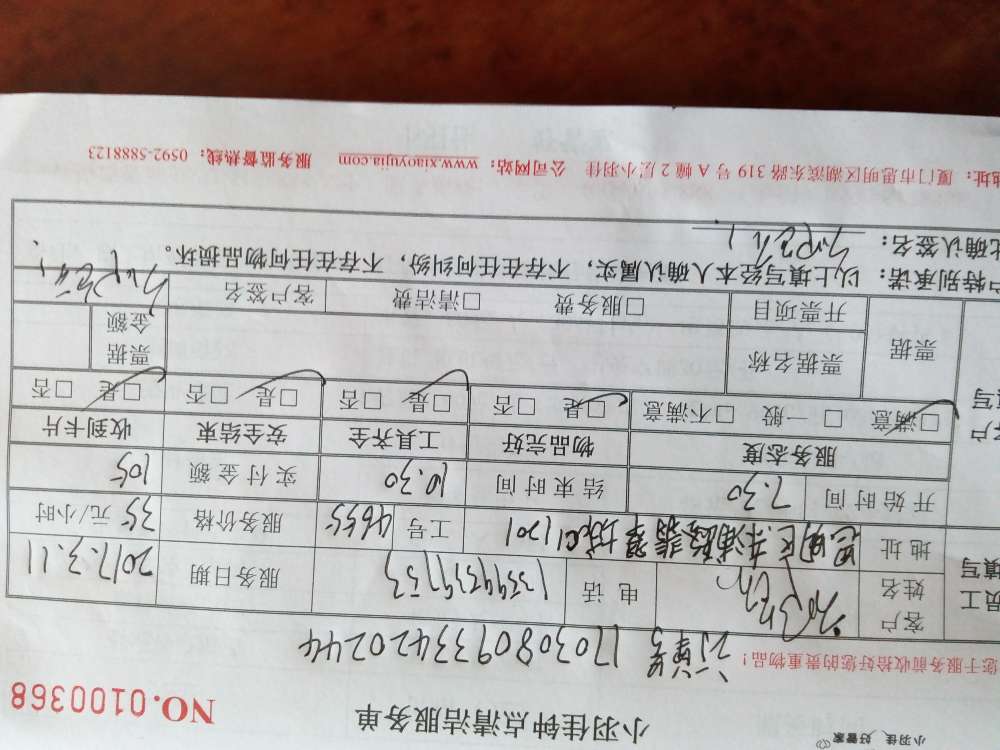 小羽佳 好管家
小羽佳钟点清洁服务单
NO.0100368
您于服务前收拾好您的贵重物品！
订单号 1703080933420244
员工填写
客户姓名 电话 13594339753 服务日期 2017.3.11
地址 思明区 翡翠城 1201 工号 4655 服务价格 35 元/小时
开始时间 7.30 结束时间 10.30 实付金额 105
服务态度 物品完好 工具齐全 安全结束 收到卡片
□满意 □一般 □不满意 □是 □否 □是 □否 □是 □否 □是 □否
票据 票据名称 票据金额
开票项目 □服务费 □清洁费 客户签名
户特别承诺：以上填写经本人确认属实，不存在任何纠纷，不存在任何物品损坏。
此确认签名：
地址：厦门市思明区湖滨东路 319 号 A 幢 2 层小羽佳 公司网站：www.xiaoyujia.com 服务监督热线：0592-5888123